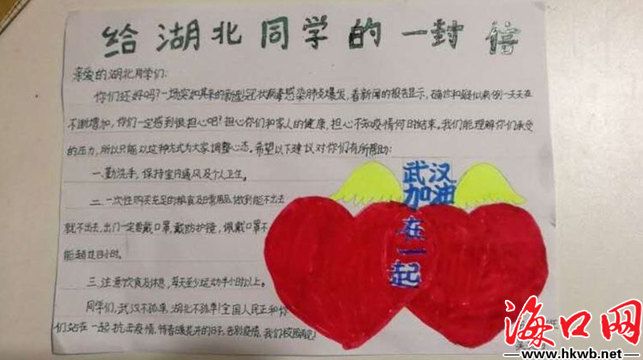 给湖北同学的一封信
亲爱的湖北同学们:
你们还好吗?一场突如其来的新型冠状病毒感染肺炎爆发,看新闻的报告显示,确诊和疑似病例一天天在
不断增加,你们一定感到很担心吧!担心你们和家人的健康,担心不知疫情何时结束。我们能理解你们承受
的压力,所以只能以这种方式为大家调整心态,希望以下建议对你们有所帮助:
一.勤洗手,保持室内通风及个人卫生。
二.一次性购买充足的粮食及日常用品,做到能不出去
就不出去,出门一定要戴口罩,戴防护镜,佩戴口罩不
能超过四小时。
三.注意饮食及休息,每天至少运动半小时以上。
同学们,武汉不孤单,湖北不孤单!全国人民正和你
们站在一起抗击疫情,待春暖花开的日子,告别疫情,我们校园再见!
武汉
加油
在一起
海口网
www.hkwb.net